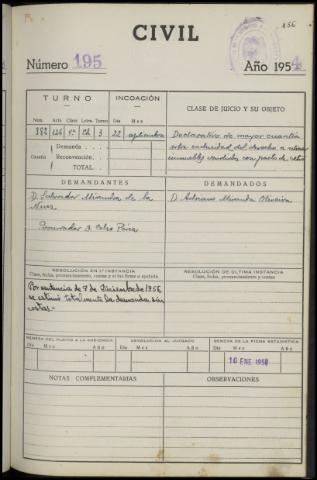 156
CIVIL
Número 195
Año 1954
TURNO
INCOACIÓN
CLASE DE JUICIO Y SU OBJETO
Núm. Año Clase Letra Turno
Día Mes
382 3 22 septiembre
Declarativo de mayor cuantía
sobre caducidad del derecho a retraer
inmuebles vendidos con pacto de retro
Demanda
Cuantía Reconvención
TOTAL
DEMANDANTES
DEMANDADOS
D. Salvador Miranda de la
D. Adriano Miranda
Procurador D.
RESOLUCIÓN EN 1ª INSTANCIA
Clase, fecha, pronunciamiento, costas y si fué firme o apelada.
RESOLUCIÓN DE ÚLTIMA INSTANCIA
Clase, fecha, pronunciamiento y costas
Por sentencia de 7 de Diciembre de 1956
se estimó totalmente la demanda sin
costas.-
REMESA DEL PLEITO A LA AUDIENCIA
DEVOLUCIÓN AL JUZGADO
REMESA DE LA FICHA ESTADÍSTICA
Día Mes Año
Día Mes Año
Día Mes Año
16 ENE 1958
NOTAS COMPLEMENTARIAS
OBSERVACIONES